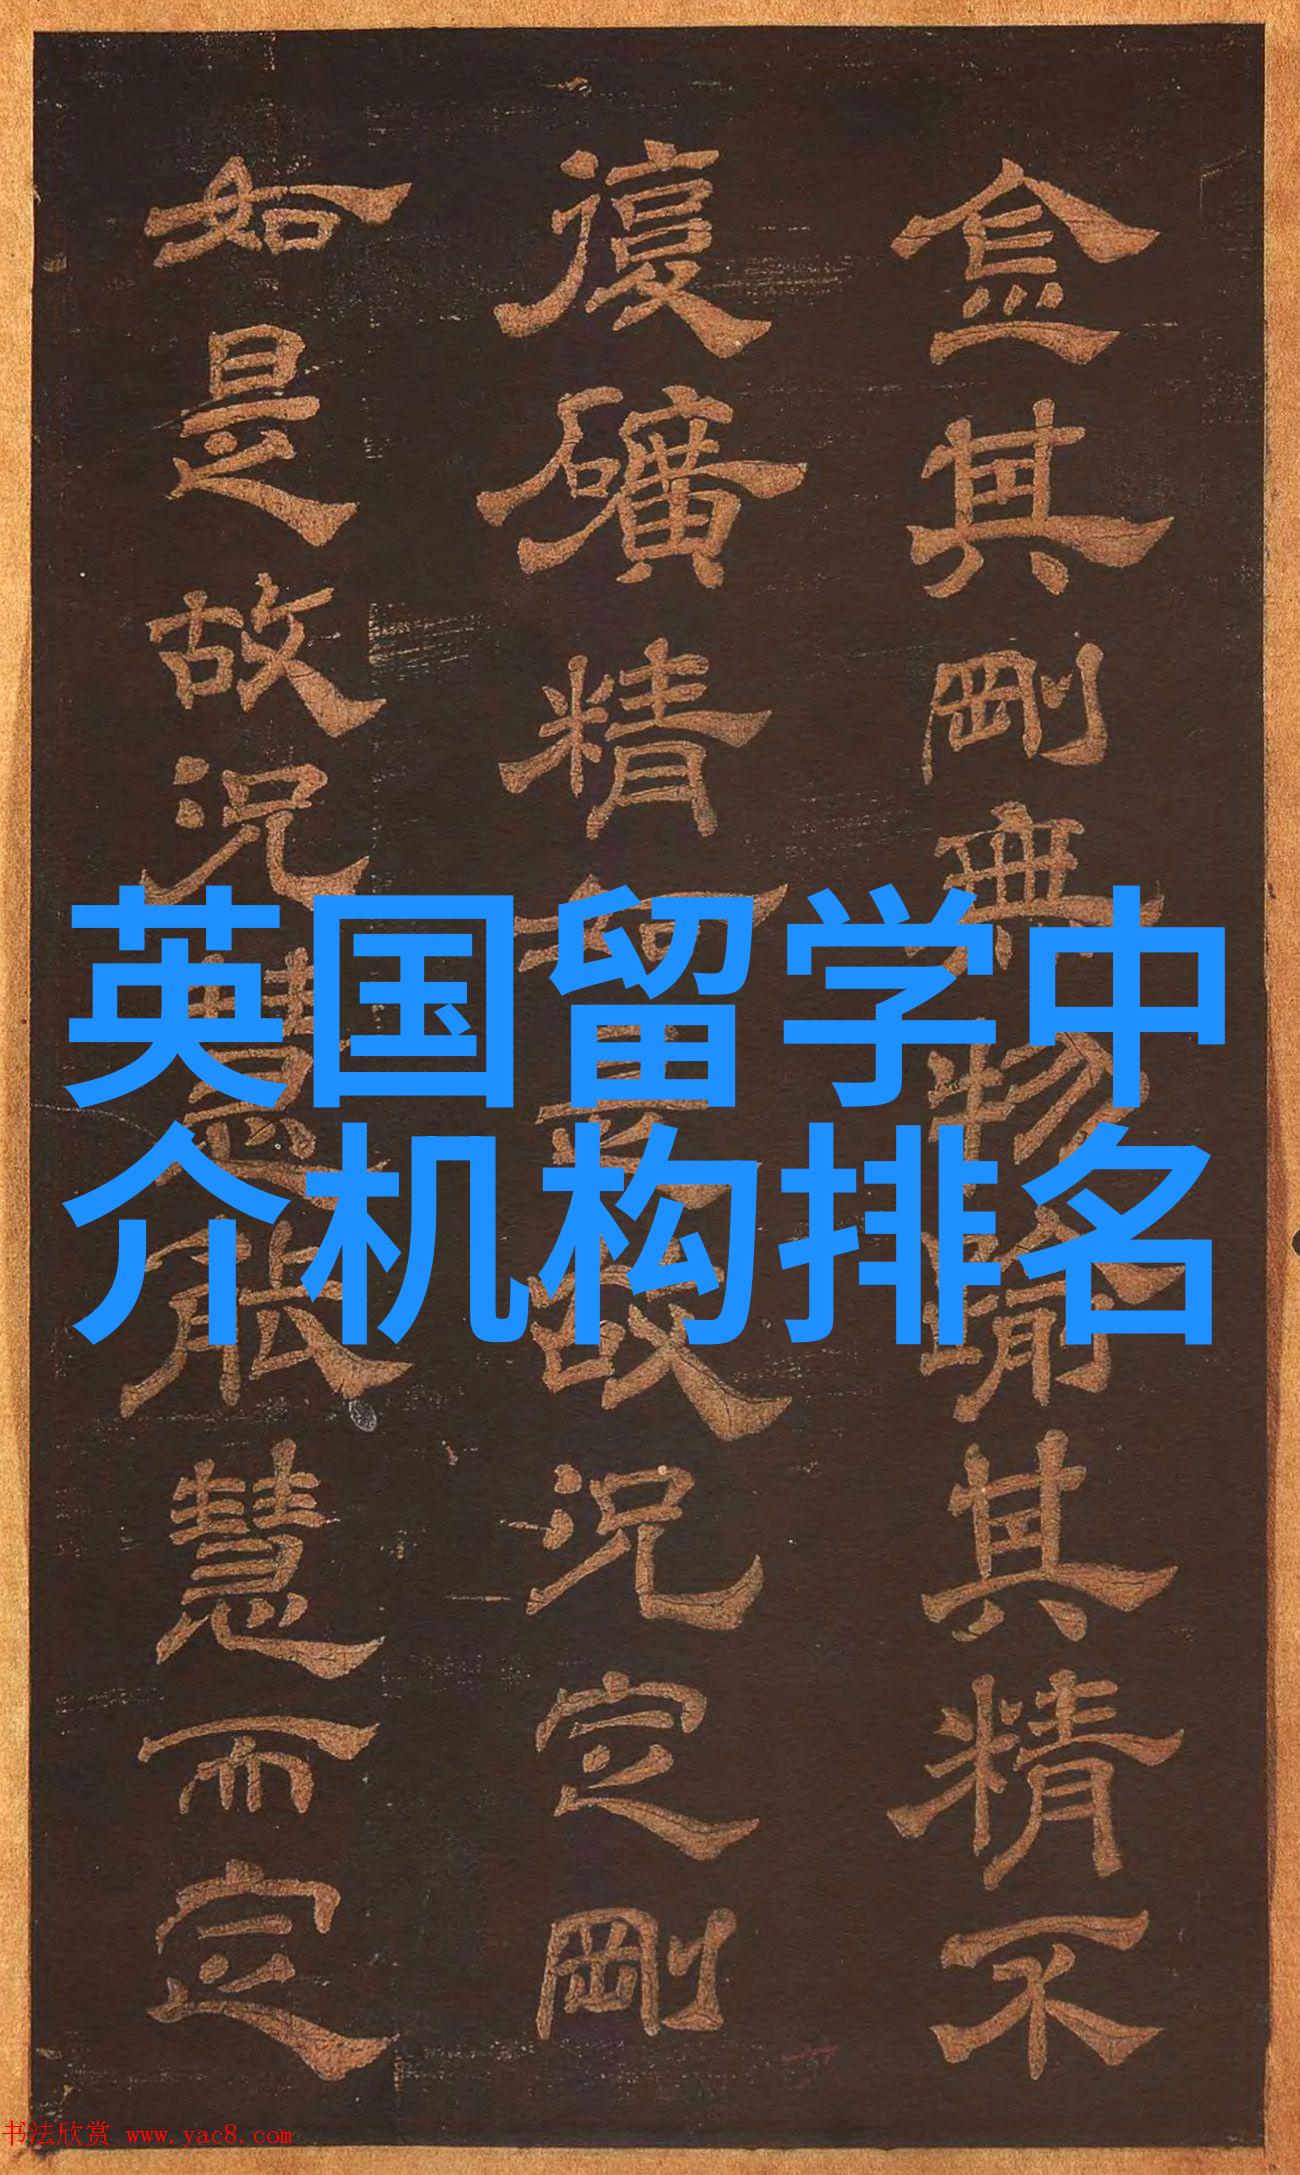 英国留学中
介机构排名
金其剛無物踰其精不
復礦精如是故況定剛
如是故況慧能慧而定
书法欣赏 www.yac8.com